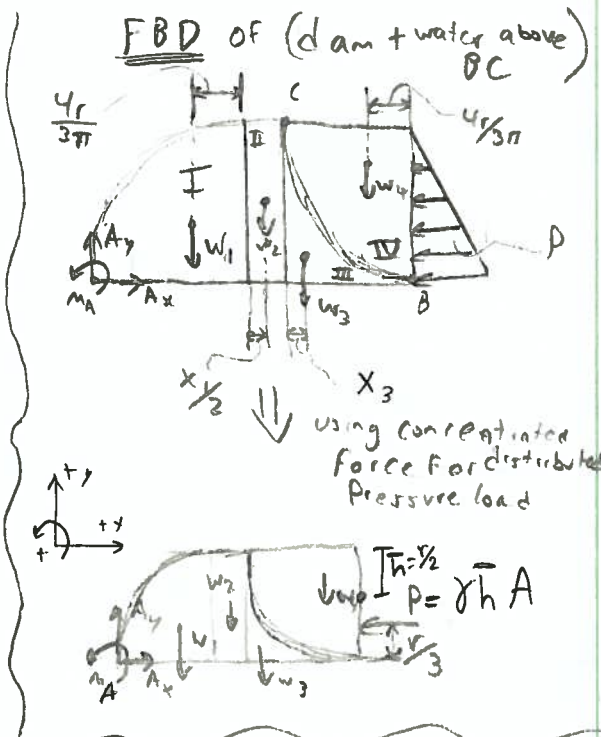 FBD of (dam + water above BC)
4r/3π
C
4r/3π
I
II
W₁
W₂
W₄
IV
III
W₃
P
Ay
MA
Ax
B
x/2
X₃
⇓
using concentrated
force for distributed
Pressure load
+y
+x
+
h̄=r/2
P= γh̄A
W₂
Ay
W
W₃
r/3
A
Ax